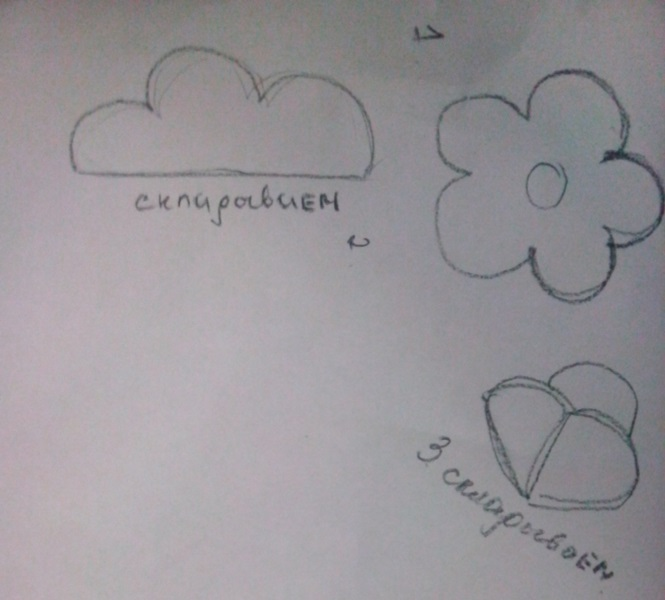 1
складываем
2
3 складываем